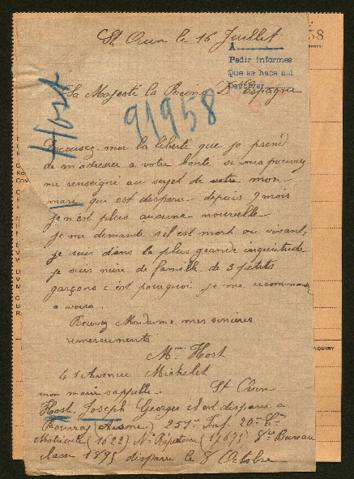 St Ouen le 16 Juillet
A
Pedir informes
Que se haga así
Sa Majesté la Reine D'Espagne
Host
91958
58
Excusez moi la liberté que je prend
de m'adresser a votre bonté si vous pouvez
me renseigné au sujet de votre mon
mari qui est disparu depuis 9 mois
je n'est plus aucune nouvelle
je me demande s'il est mort ou vivant,
je suis dans la plus grande inquiétude
je suis mère de famille de 3 petits
garçons c'est pourquoi je me recommande
a vous.
Recevez Madame mes sincères
remerciements
Mme Host
41 Avenue Michelet
St Ouen
mon mari s'appelle
Host Joseph Georges disparu a
(Aisne) 251e Inf. 20e Cie
Matricule (1622) No Répertoire 8e Bureau
classe 1895 disparu le 8 Octobre